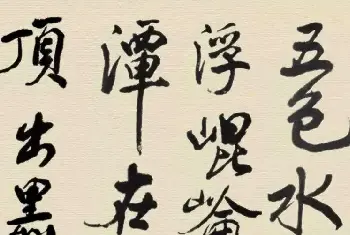 五色水
浮崐崘
潭在
頂出黑